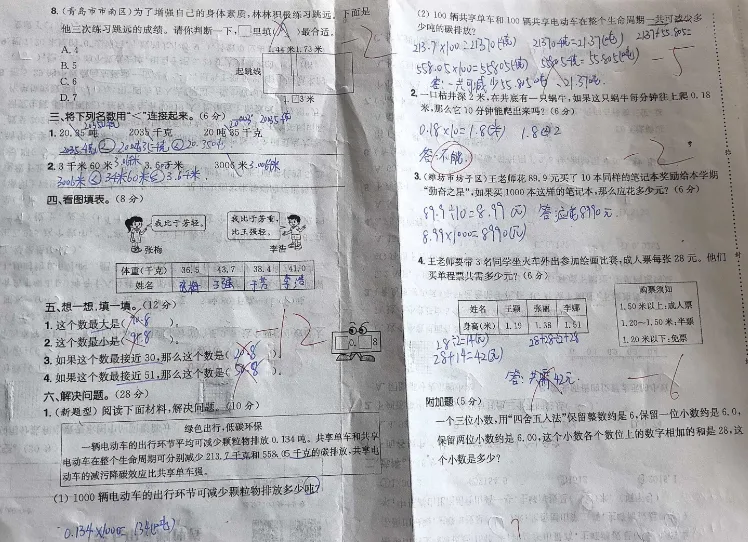 8.(青岛市市南区)为了增强自己的身体素质,林林积极练习跳远。下面是
他三次练习跳远的成绩。请你判断一下,□里填( A )最合适。
A. 4
B. 5
C. 6
D. 7
1.44 米 1.73 米
起跳线
1.□3 米
三、将下列名数用“<”连接起来。(6 分)
1. 20.35 吨 2035 千克 20 吨 35 千克
2. 3 千米 60 米 3.6 千米 3006 米
四、看图填表。(8 分)
我比于芳轻。
我比于芳重,
比王强轻。
张梅 李浩
体重(千克) 36.5 43.7 38.4 41.0
姓名 张梅 王强 于芳 李浩
五、想一想,填一填。(12 分)
1. 这个数最大是( )。
2. 这个数最小是( )。
3. 如果这个数最接近 30,那么这个数是( )。
4. 如果这个数最接近 51,那么这个数是( )。
0. 8
-12
六、解决问题。(28 分)
1.(新题型) 阅读下面材料,解决问题。(10 分)
绿色出行,低碳环保
一辆电动车的出行环节平均可减少颗粒物排放 0.134 吨。共享单车和共享
电动车在整个生命周期可分别减少 213.7 千克和 558.05 千克的碳排放,共享电
动车的减污降碳效应比共享单车强。
(1) 1000 辆电动车的出行环节可减少颗粒物排放多少吨?
0.134×1000=134(吨)
(2) 100 辆共享单车和 100 辆共享电动车在整个生命周期一共可减少多
少吨的碳排放?
213.7×100=21370(千克) 21370千克=21.37(吨)
558.05×100=55805(千克) 55805千克=55.805(吨)
-5
2. 一口枯井深 2 米,在井底有一只蜗牛,如果这只蜗牛每分钟往上爬 0.18
米,那么它 10 分钟能爬出来吗?(6 分)
0.18×10=1.8(米) 1.8<2
答:不能。
-2
3.(潍坊市坊子区)王老师花 89.9 元买了 10 本同样的笔记本奖励给本学期
“勤奋之星”,如果买 1000 本这样的笔记本,那么应花多少元?(6 分)
89.9÷10=8.99(元) 答:应花8990元
8.99×1000=8990(元)
4. 王老师要带 3 名同学坐火车外出参加绘画比赛,成人票每张 28 元。他们
买单程票共需多少元?(6 分)
姓名 王颖 张丽 李娜
身高(米) 1.19 1.38 1.51
购票须知
1.50 米以上:成人票
1.20~1.50 米:半票
1.20 米以下:免票
28÷2=14(元)
28+14=42(元)
答:共需42元
-6
附加题(5 分)
一个三位小数,用“四舍五入法”保留整数约是 6,保留一位小数约是 6.0,
保留两位小数约是 6.00,这个小数各个数位上的数字相加的和是 28,这
个小数是多少?